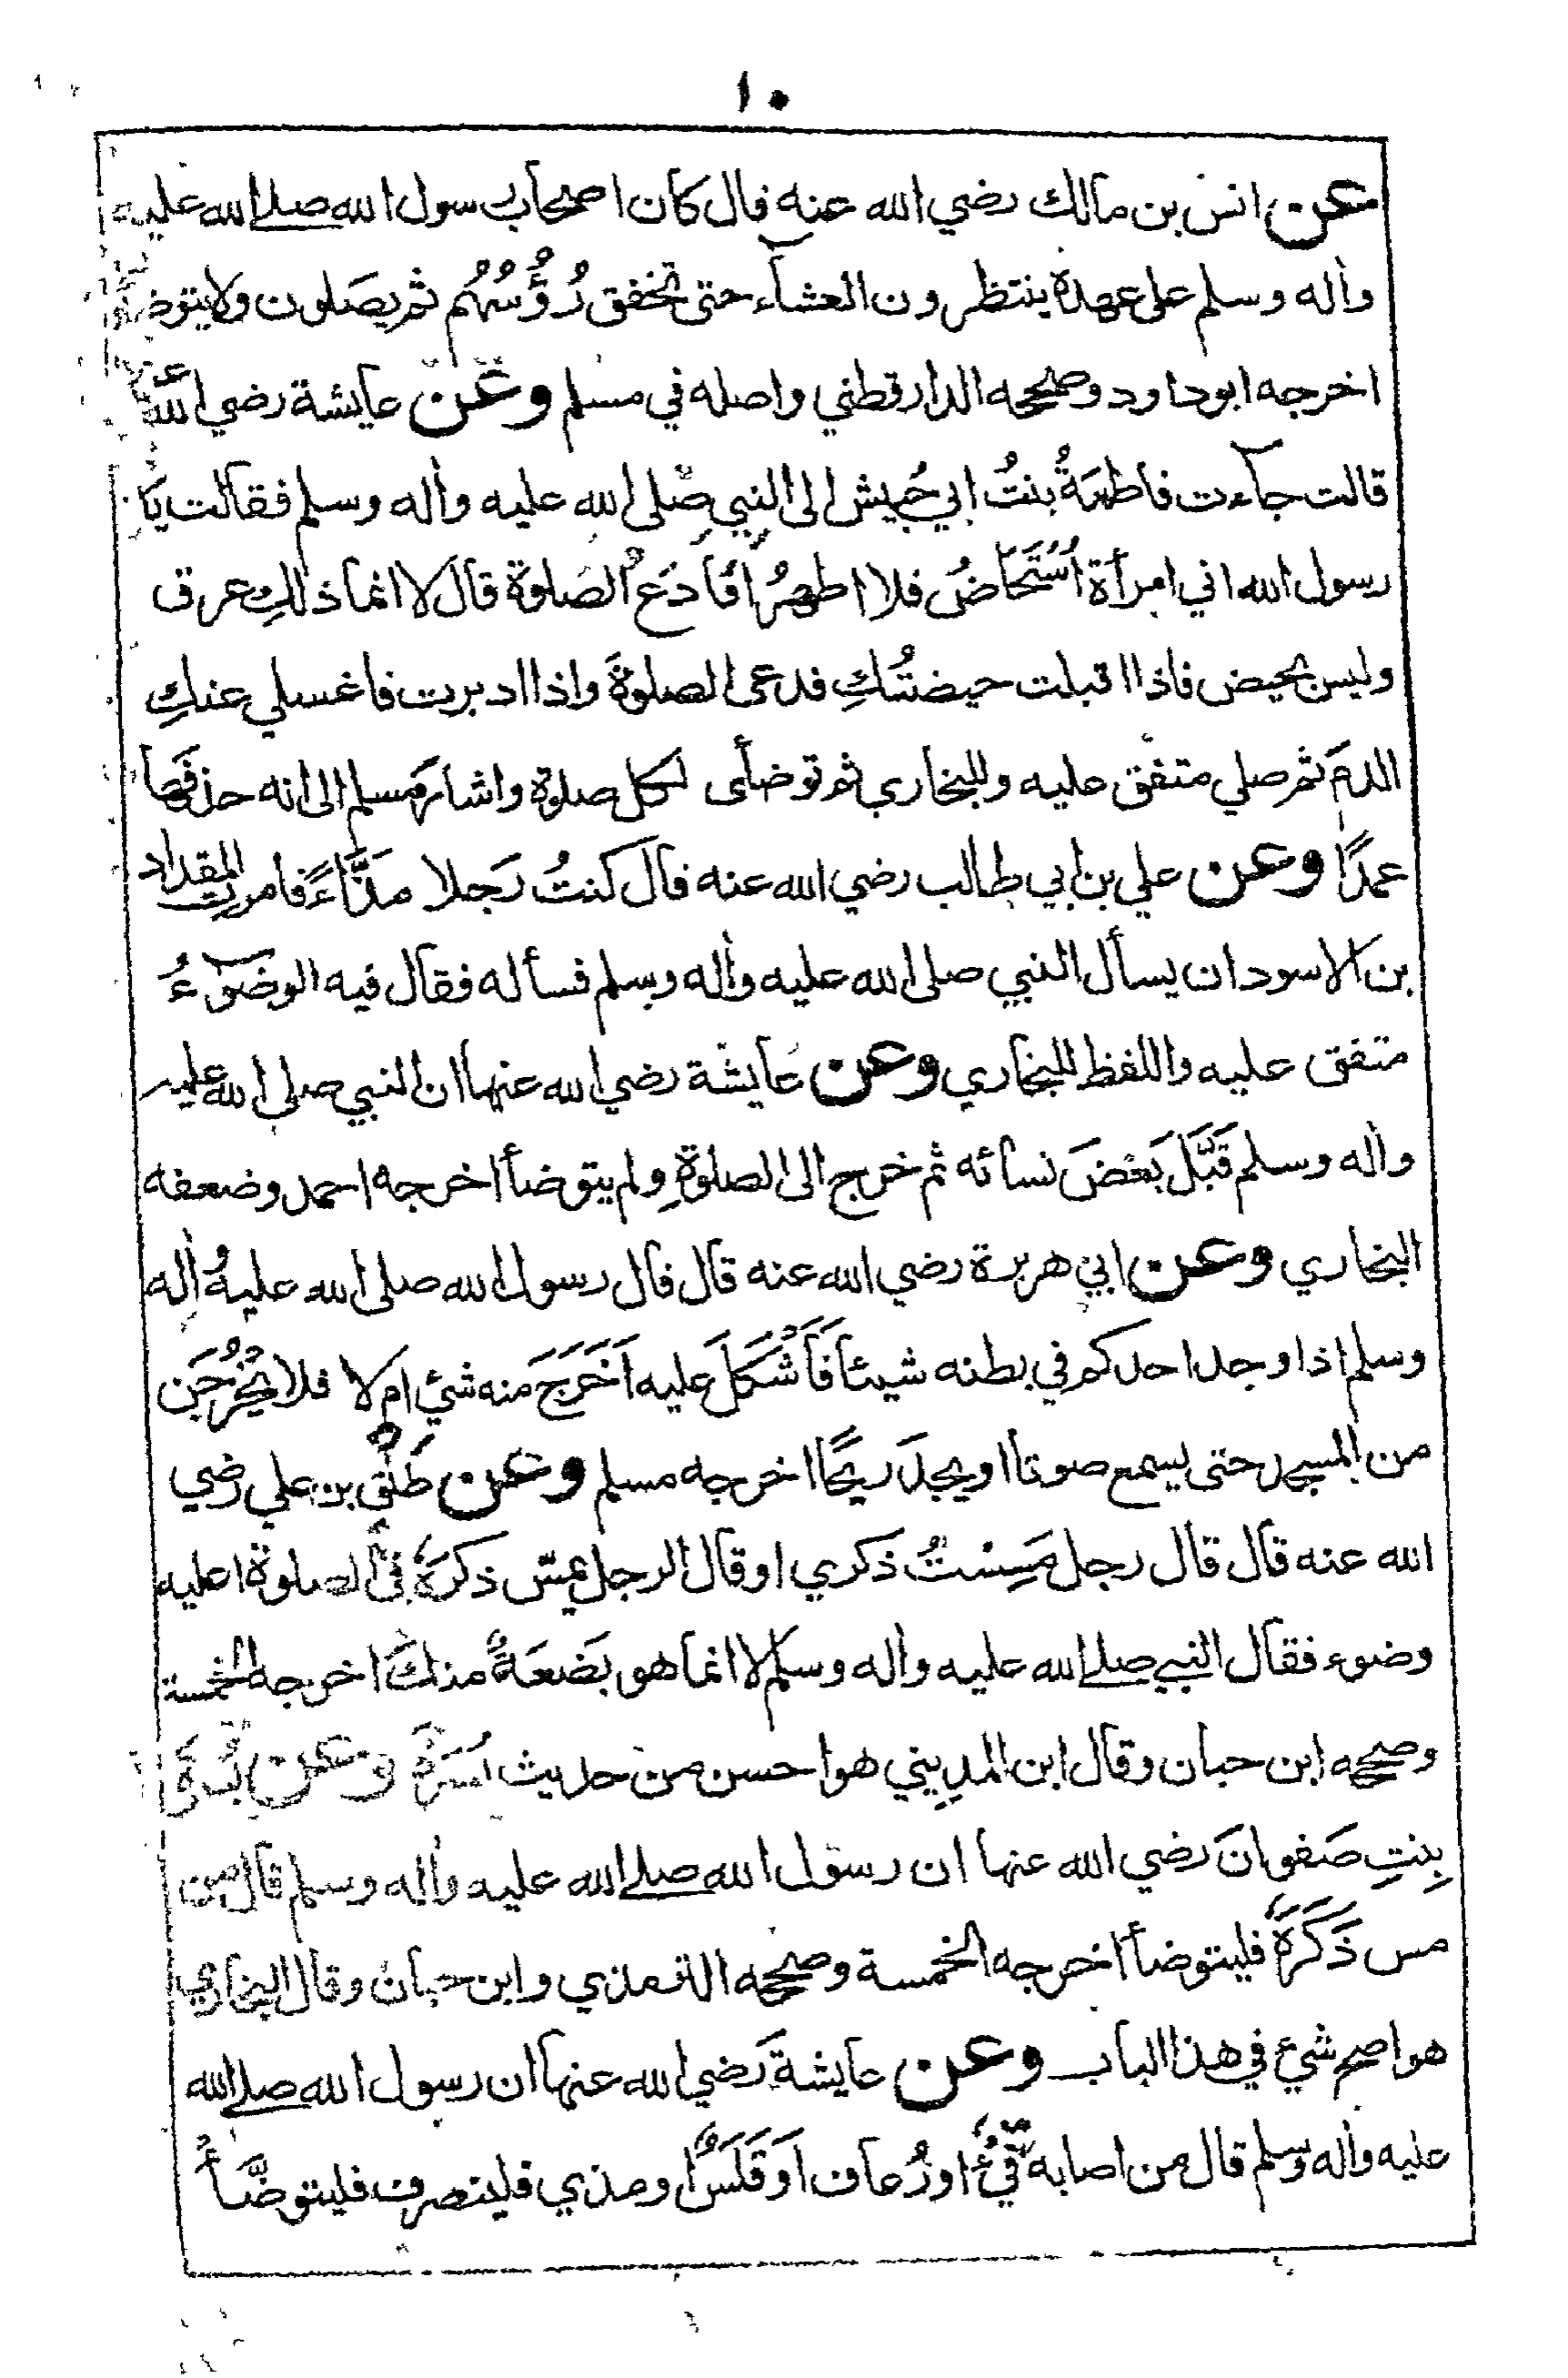 ١٠
عن انس بن مالك رضي الله عنه قال كان اصحاب رسول الله صلى الله عليه
وأله وسلم على عهده ينتظرون العشآء حتى تخفق رُؤُسُهُم ثم يصَلون ولا يتوضؤن
اخرجه ابوداود وصححه الدارقطني واصله في مسلم وعن عايشة رضي الله عنها
قالت جآءت فاطمةُ بنتُ ابي حُبيش الى النبي صلى الله عليه وأله وسلم فقالت يا
رسول الله اني امرأة اُسْتَحَاضُ فلا اطهرُ افَادَعُ الصَلوة قال لا انما ذلكِ عرق
وليس بحيض فاذا اقبلت حيضتُكِ فدعى الصلوةَ واذا ادبرت فاغسلي عنكِ
الدمَ ثم صلي متفق عليه وللبخاري ثم توضأى لكل صلوة واشار مسلم الى انه حذفها
عمدًا وعن علي بن ابي طالب رضي الله عنه قال كنتُ رَجلا مذَّاءً فامرت المقداد
بن الاسود ان يسأل النبي صلى الله عليه وأله وسلم فسأله فقال فيه الوضوٓءُ
متفق عليه واللفظ للبخاري وعن عايشة رضي الله عنها ان النبي صلى الله عليه
وأله وسلم قَبَّلَ بَعْضَ نسائه ثم خرج الى الصلوةِ ولم يتوضأ اخرجه احمد وضعفه
البخاري وعن ابي هريرة رضي الله عنه قال قال رسول الله صلى الله عليه وأله
وسلم اذا وجد احدكم في بطنه شيئا فَاَشْكَلَ عليه اَخَرَجَ منه شئ ام لا فلا يَخْرُجَن
من المسجد حتى يسمع صوتا او يجدَ ريحًا اخرجه مسلم وعن طَلْقِ بن علي رضي
الله عنه قال قال رجل مَسِسْتُ ذكري او قال الرجل يمسّ ذكرَهُ في الصلوة اعليه
وضوء فقال النبي صلى الله عليه وأله وسلم لا انما هو بَضعَةٌ منك اخرجه الخمسة
وصححه ابن حبان وقال ابن المدِيني هو احسن من حديث بُسْرَةَ وعن بُسْرَةَ
بِنتِ صَفوانَ رضي الله عنها ان رسول الله صلى الله عليه وأله وسلم قال من
مس ذَكَرَهُ فليتوضأ اخرجه الخمسة وصححه الترمذي وابن حبان وقال البخاري
هو اصح شيء في هذا الباب وعن عايشة رَضي الله عنها ان رسول الله صلى الله
عليه وأله وسلم قال من اصابه قَيْءٌ او رُعاف اَو قَلَسٌ او مذي فلينصرف فليتوضَّأْ